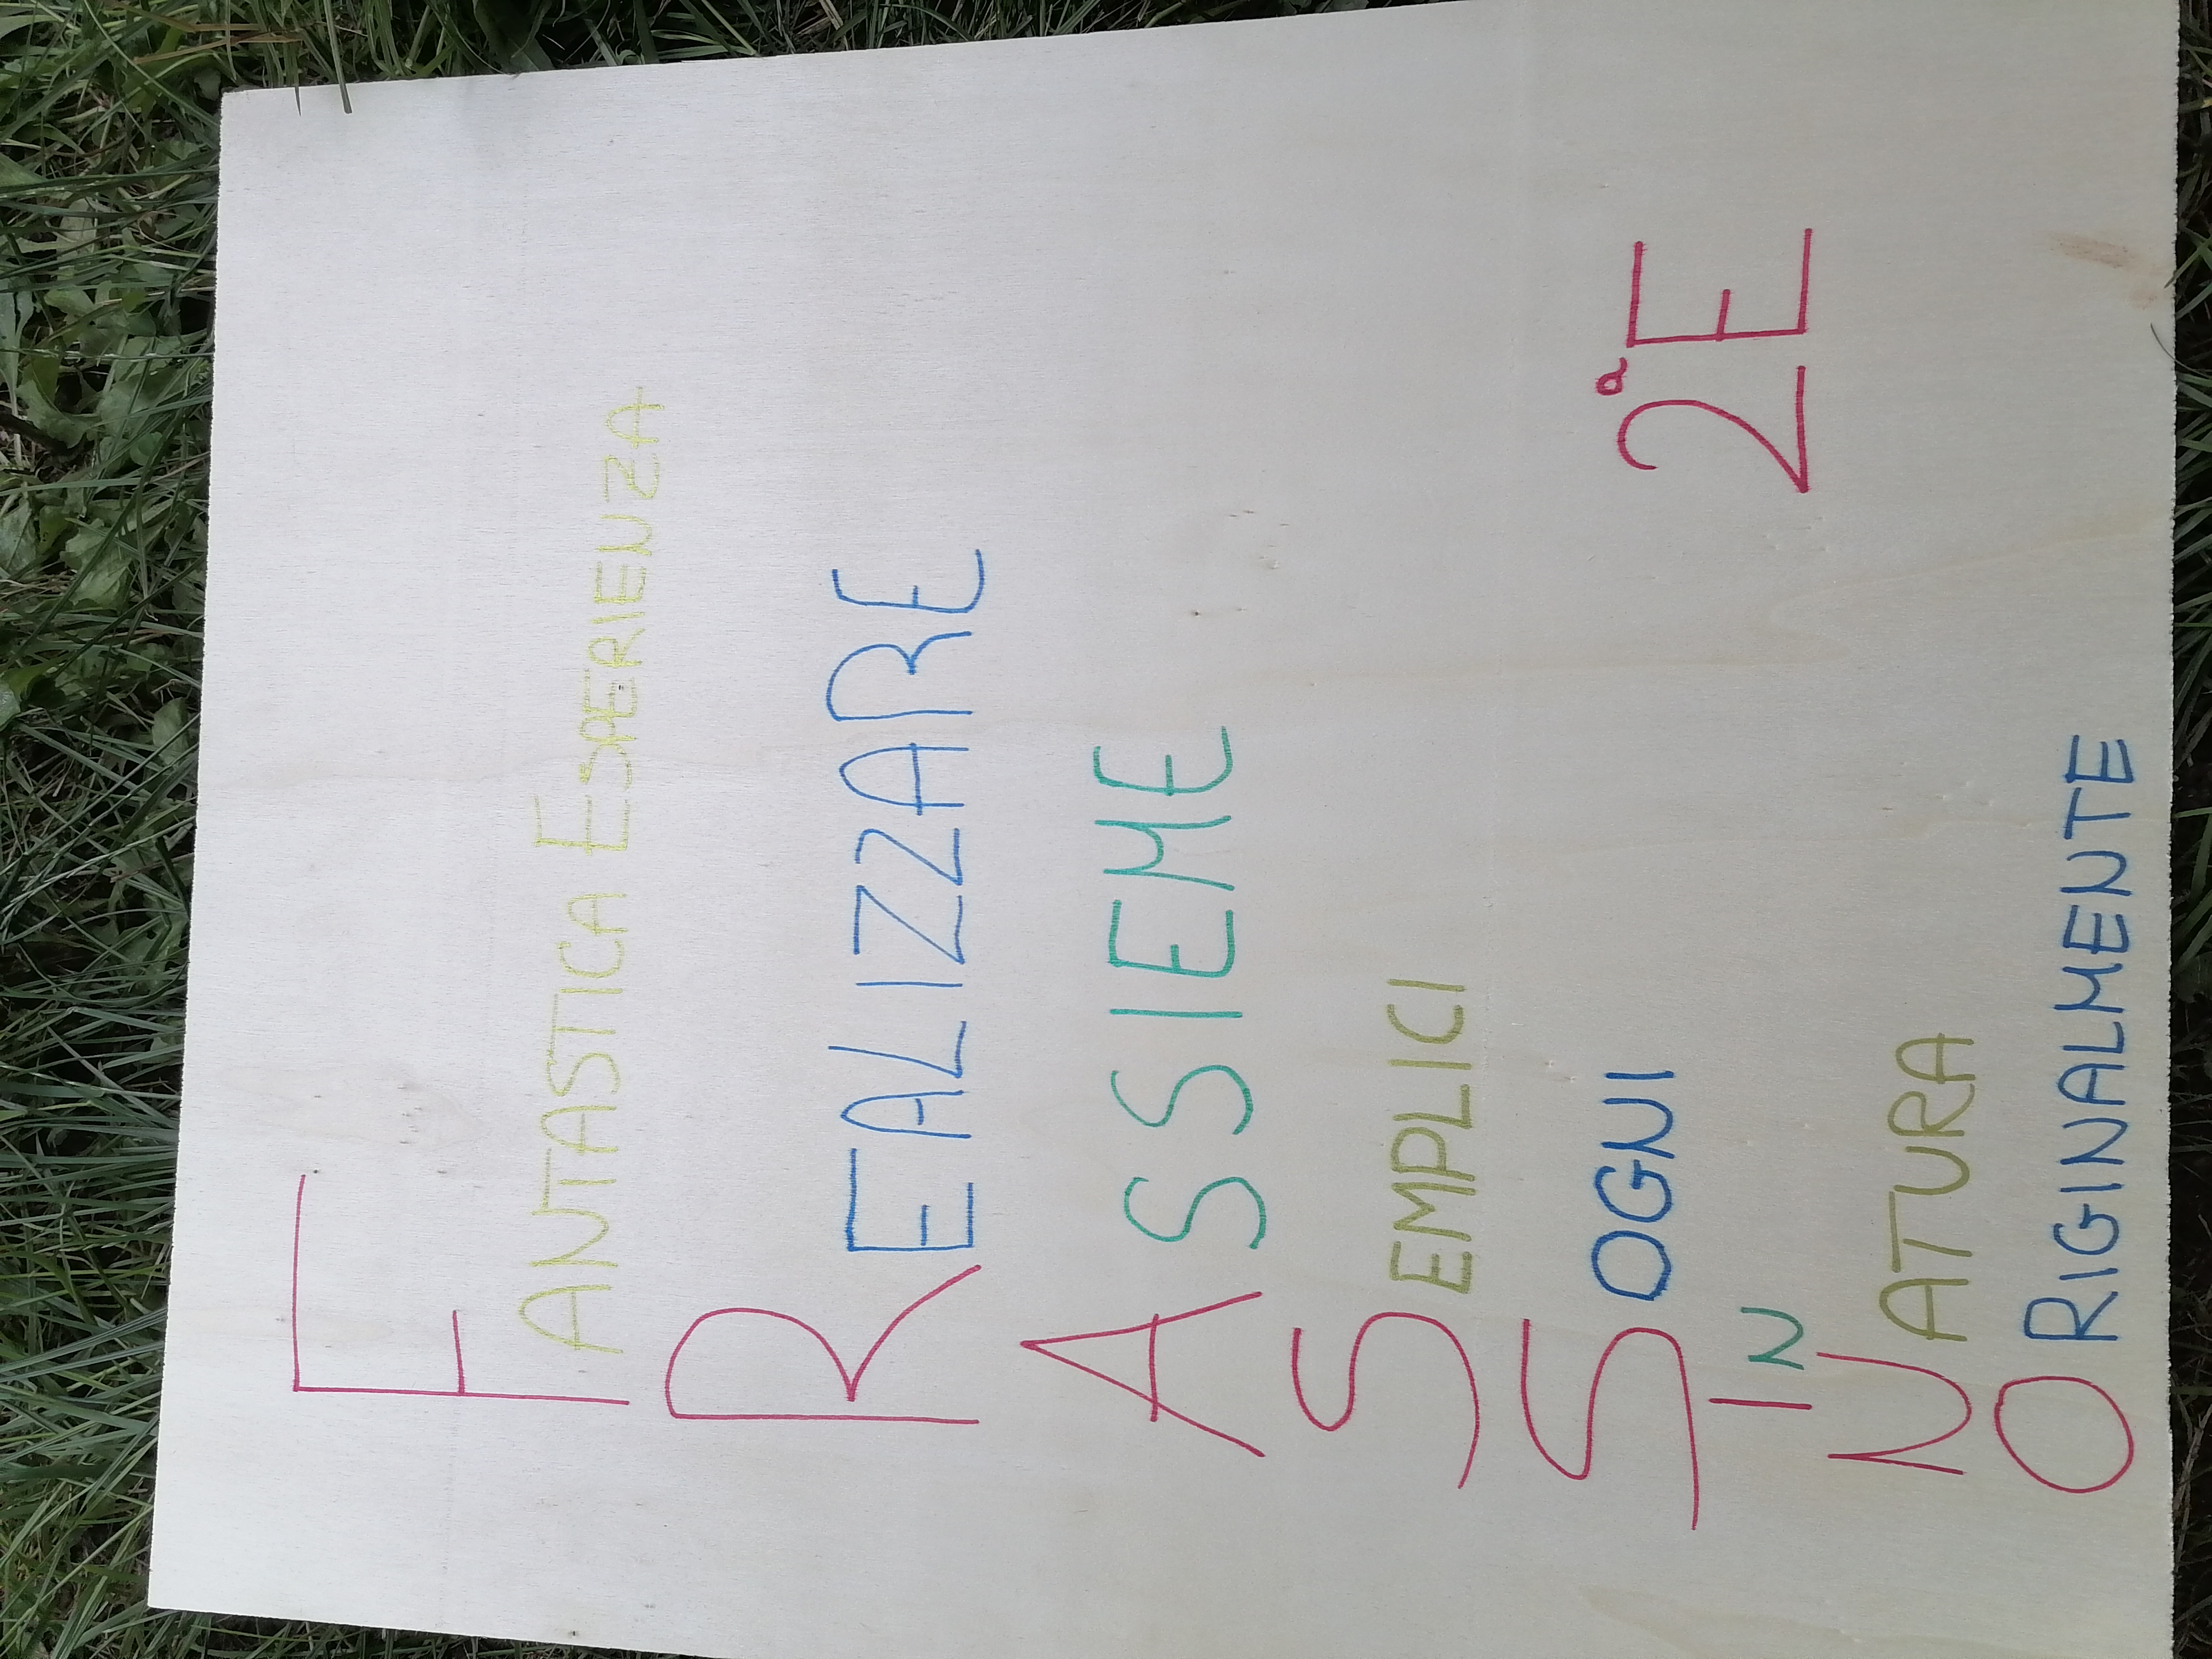 FANTASTICA ESPERIENZA
REALIZZARE
ASSIEME
SEMPLICI
SOGNI
IN
NATURA
ORIGINALMENTE
2ªE